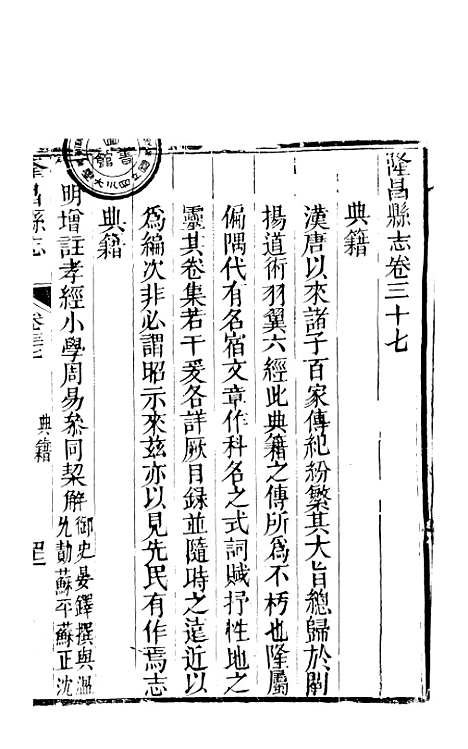 隆昌縣志卷三十七
典籍
漢唐以來諸子百家傳紀紛繁其大旨總歸於闡
揚道術羽翼六經此典籍之傳所為不朽也隆屬
偏隅代有名宿文章作科名之式詞賦抒性地之
靈其卷集若干爰各詳厥目録並隨時之遠近以
為編次非必謂昭示來茲亦以見先民有作焉志
典籍
明增註孝經小學周易叅同契解御史晏鐸撰與溫
允勣蘇平蘇正沈
隆昌縣志
卷三七
典籍